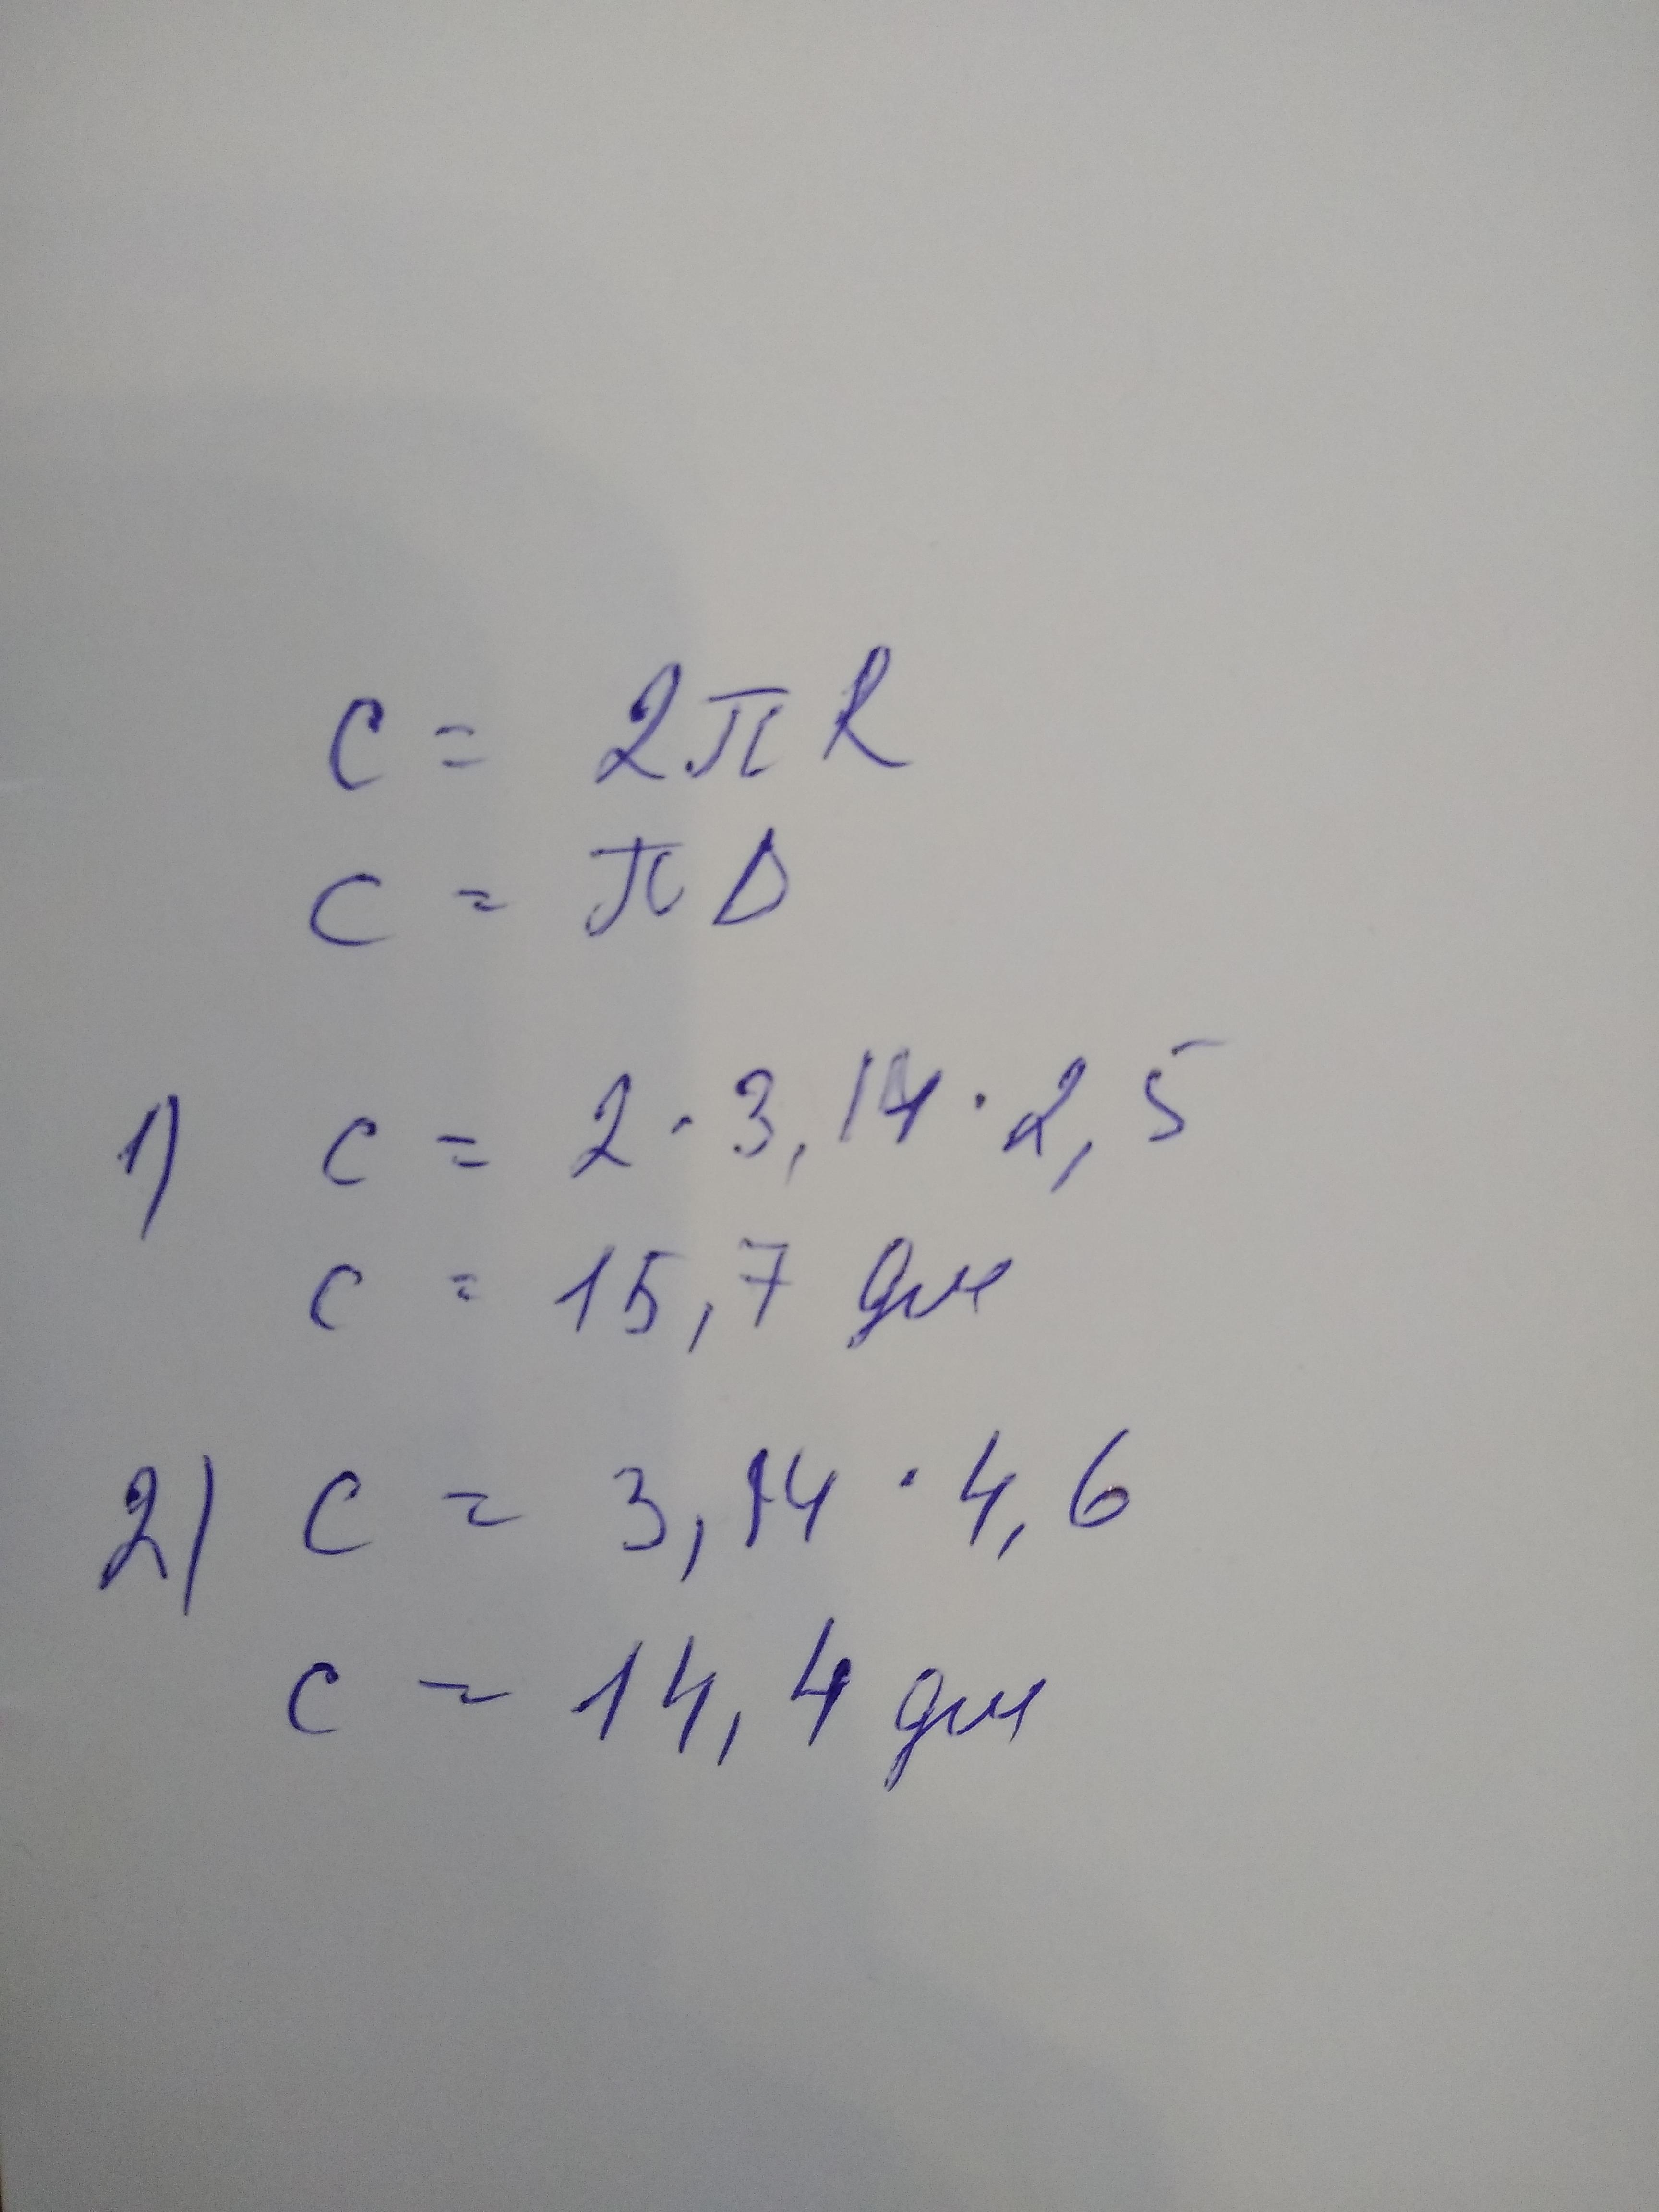 C = 2πR
C = πD
1) C = 2 · 3,14 · 2,5
C = 15,7 дм
2) C = 3,14 · 4,6
C = 14,4 дм